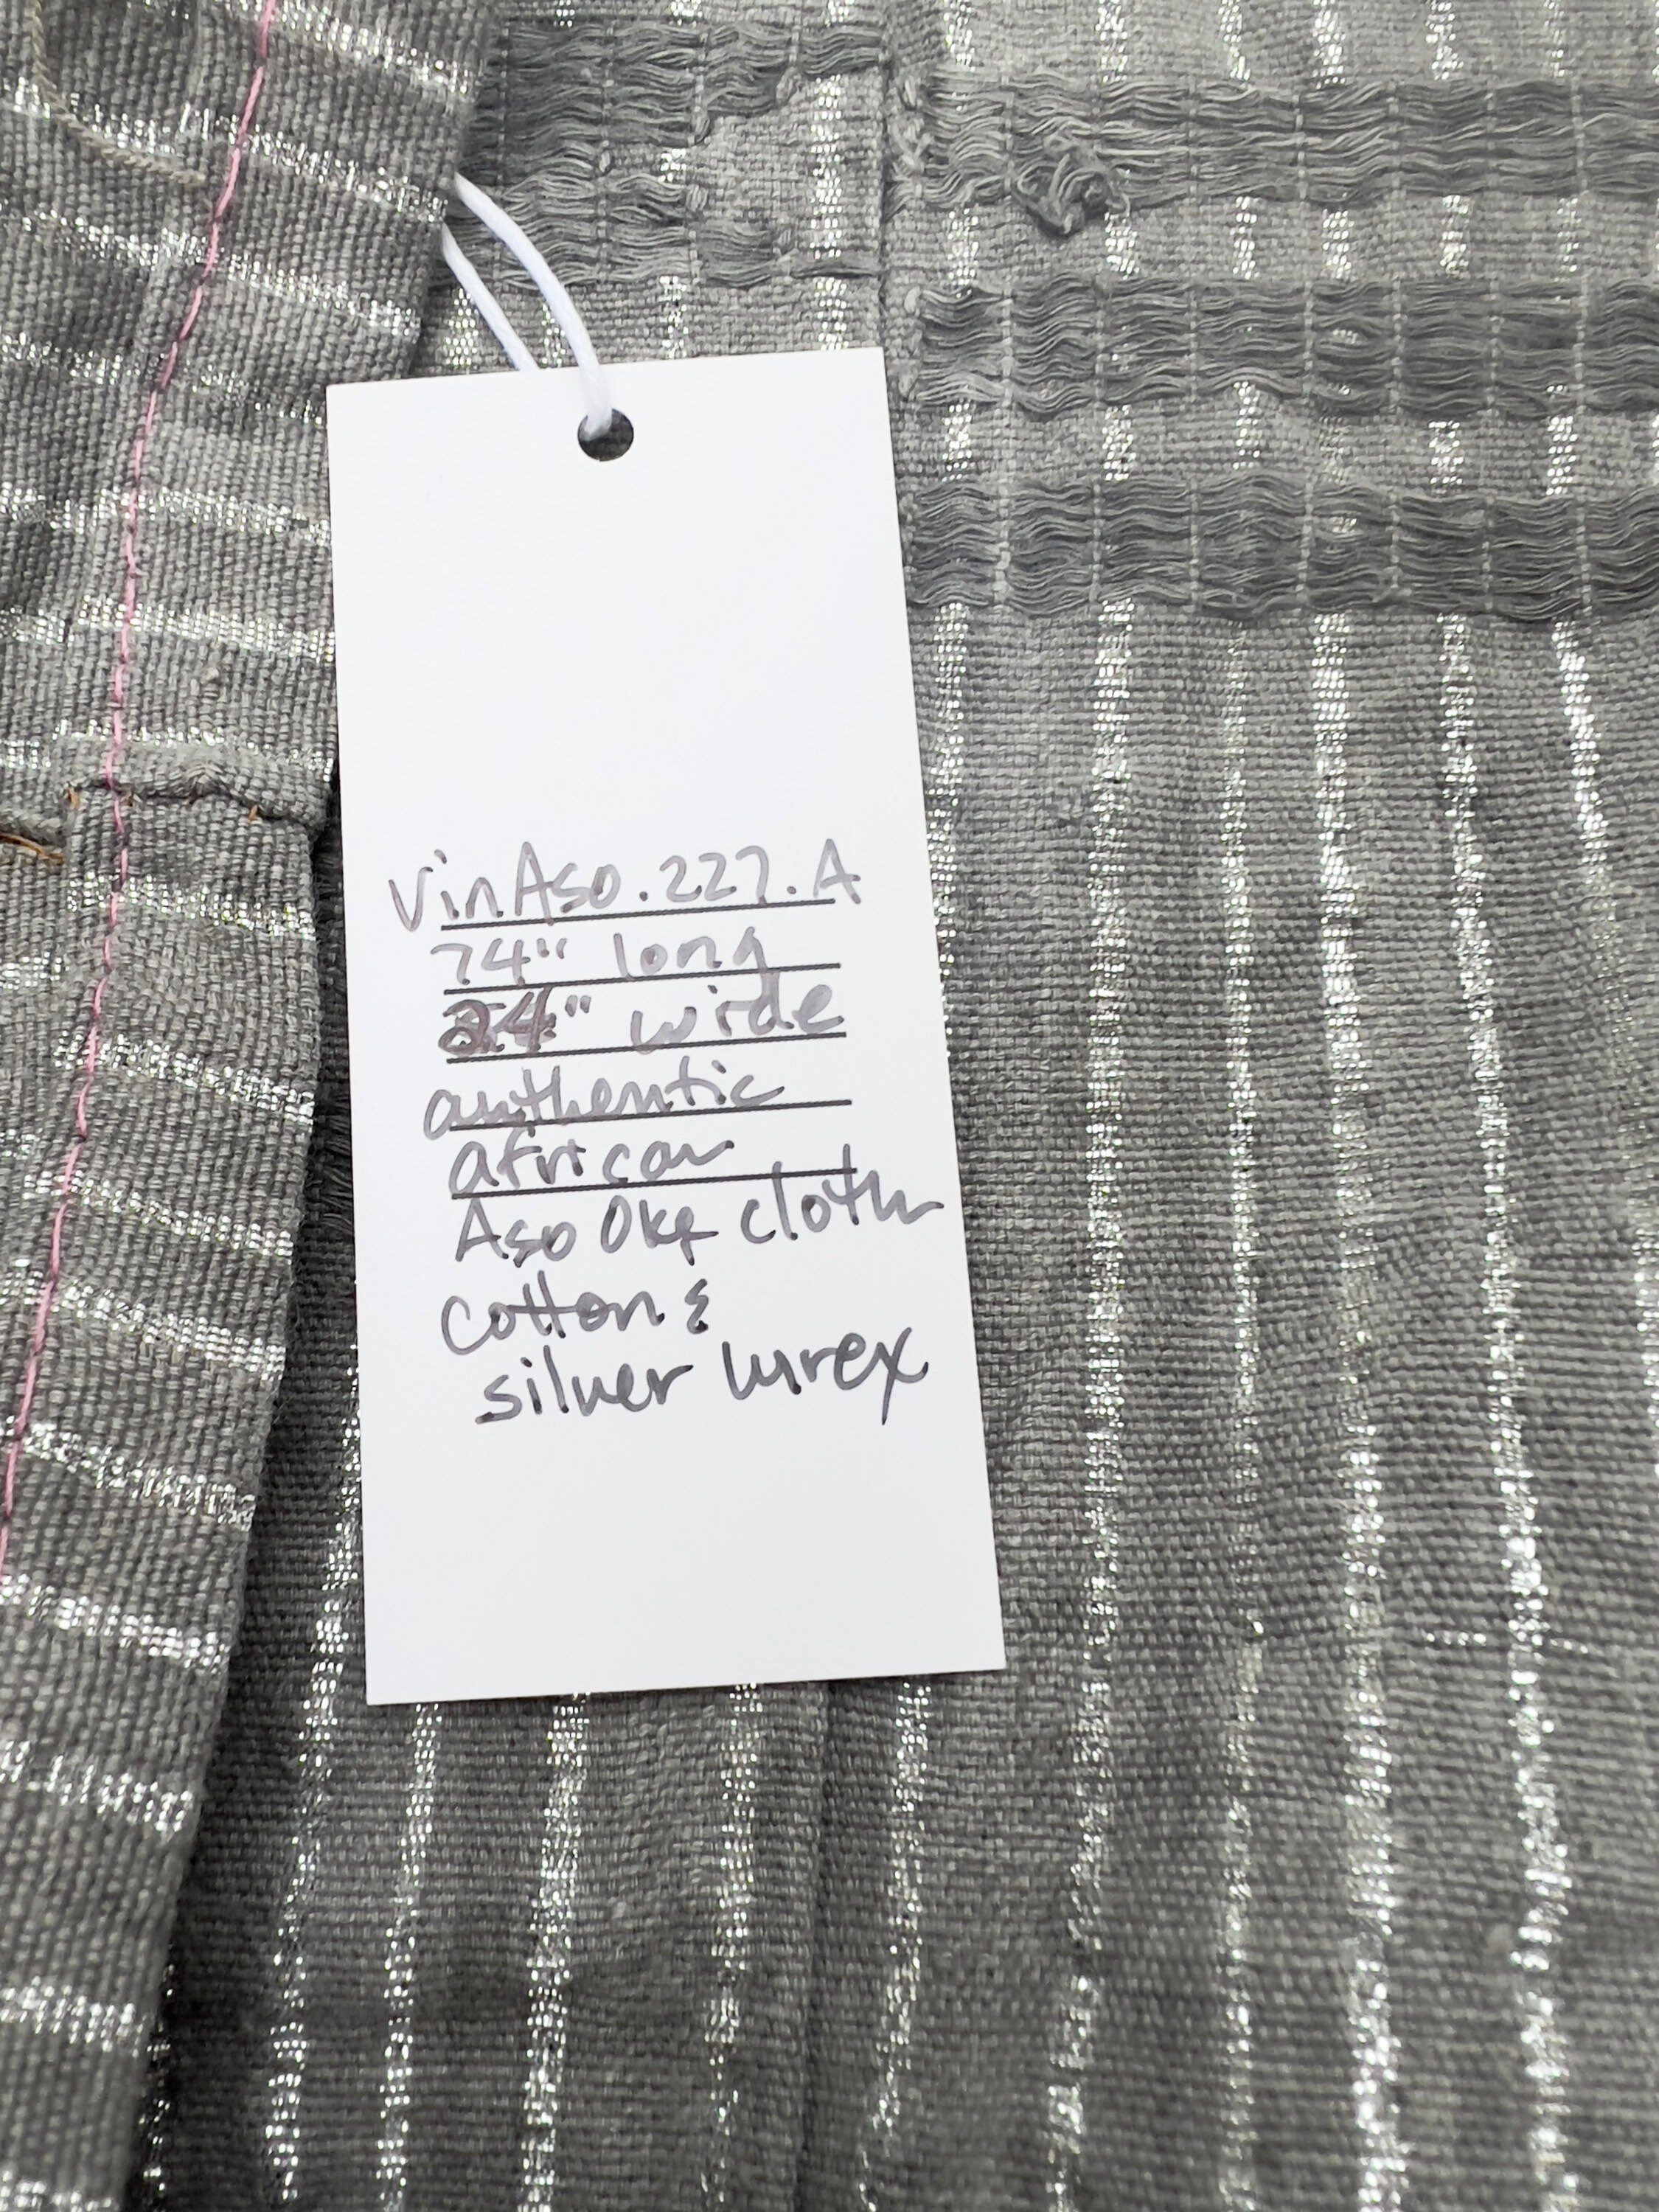 VinAso.227.A
74" long
24" wide
authentic
african
Aso Oke cloth
cotton &
silver lurex